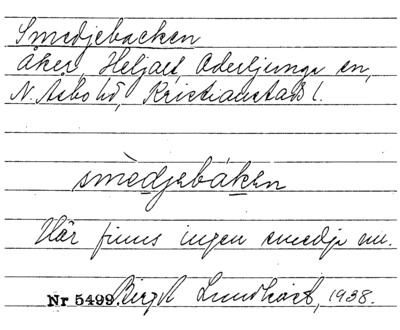 Smedjebacken
åker, Heljalt, Oderljunga sn,
N. Åsbo hd, Kristianstads l.
smèdjebáken
Här finns ingen smedja nu.
Nr 5499. Birgit 1938.